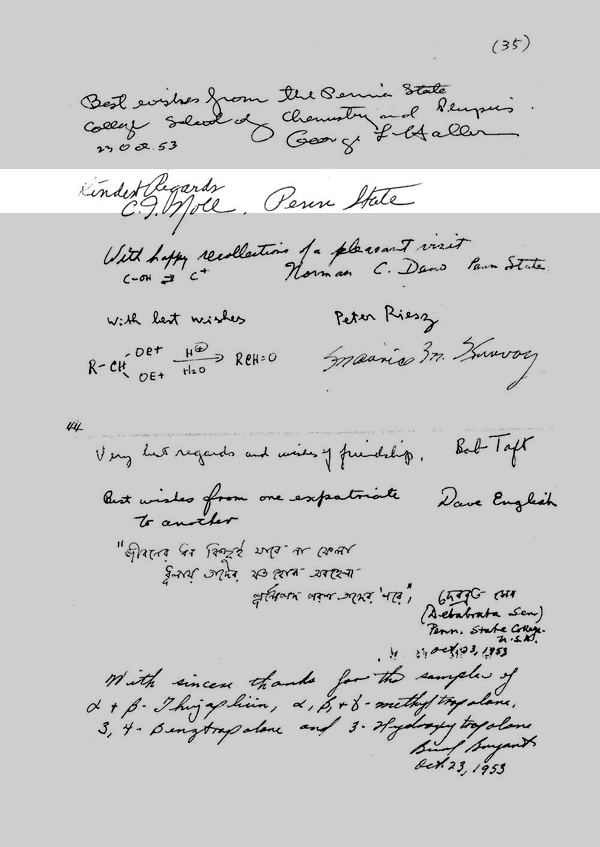 (35)
Best wishes from the Penna State
College School of Chemistry and Physics.
23 Oct. 53 George L Haller
Kindest Regards
C. I. Noll. Penn State
With happy recollections of a pleasant visit
C-OH ⇄ C+ Norman C. Deno Penn State
With best wishes Peter Riesz
R-CH OEt OEt H⊕ H2O → RCH=O
44
Very best regards and wishes of friendship. Bob Taft
Best wishes from one expatriate Dave English
to another
"জীবনের ধন কিছুই যাবে না ফেলা
ধূলায় তাদের যত হোক অবহেলা
পূর্ণের পদ পরশ তাদের 'পরে",
দেবব্রত সেন
(Debabrata Sen)
Penn. State College.
U.S.A.
Oct 23, 1953
With sincere thanks for the samples of
α + β- Thujaplicin, α, β, + γ- methyl tropolone,
3, 4- Benztropolone and 3- Hydroxy tropolone
Bryant
Oct. 23, 1953